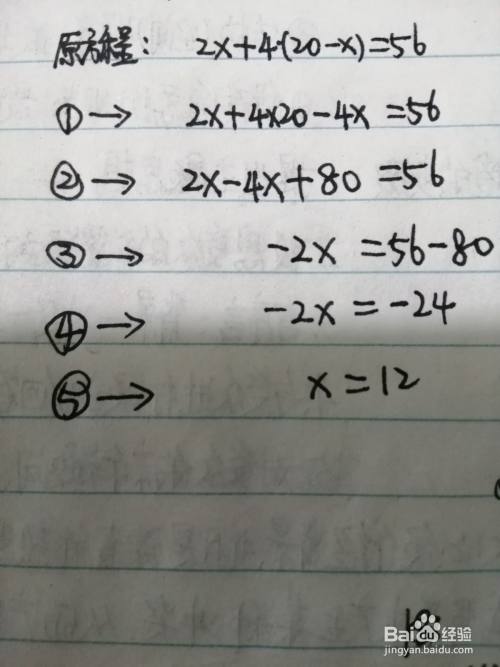 原方程: 2x+4·(20-x)=56
①→ 2x+4x20-4x=56
②→ 2x-4x+80=56
③→ -2x=56-80
④→ -2x=-24
⑤→ x=12
Baidu经验
jingyan.baidu.com